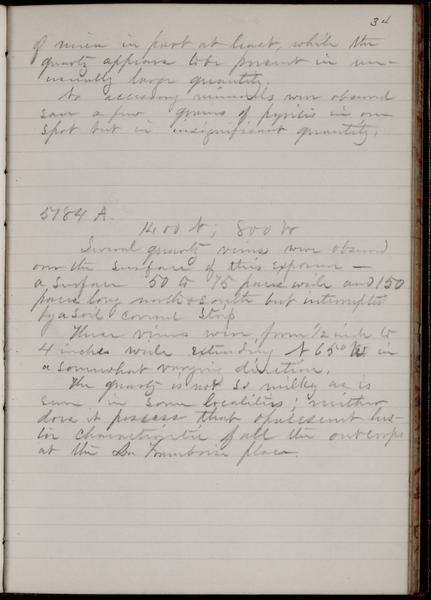 34
of mica in part at least, while the
quartz appears to be present in un-
usually large quantity.
No accessory minerals were observed
save a few grains of pyrites in one
spot but in insignificant quantity.
5184 A.
1400 N, 800 W
Several quartz veins were observed
over the surface of this exposure –
a surface 50 to 75 paces wide and 150
paces long north & south but interrupted
by a soil covered strip
These veins were from 1/2 inch to
4 inches wide extending N 65° W in
a somewhat varying direction.
The quartz is not so milky as is
seen in some localities; neither
does it possess that opalescent lus-
tre characteristic of all the outcrops
at the place.